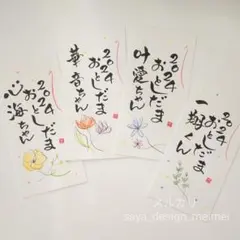 2024
おとしだま
心海ちゃん
2024
おとしだま
華音ちゃん
2024
おとしだま
叶愛ちゃん
2024
おとしだま
一翔くん
メルカリ
saya_design_meimei